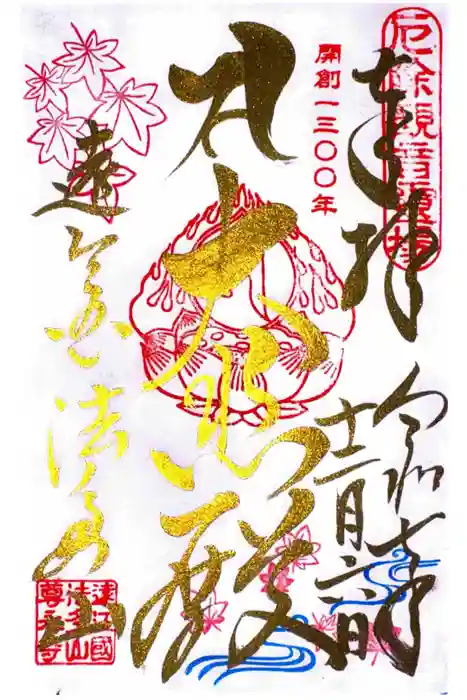 厄除観音霊場
奉拝
令和七年
十二月六日
開創一三〇〇年
大悲殿
遠江法多山
遠江國
法多山
尊永寺